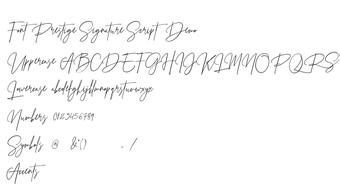 Font Prestige Signature Script Demo
Uppercase ABCDEFGHIJKLMNOPQRS
Lowercase abcdefghijklmnopqrstuvwxyz
Numbers 0123456789
Symbols @ &*() . /
Accents